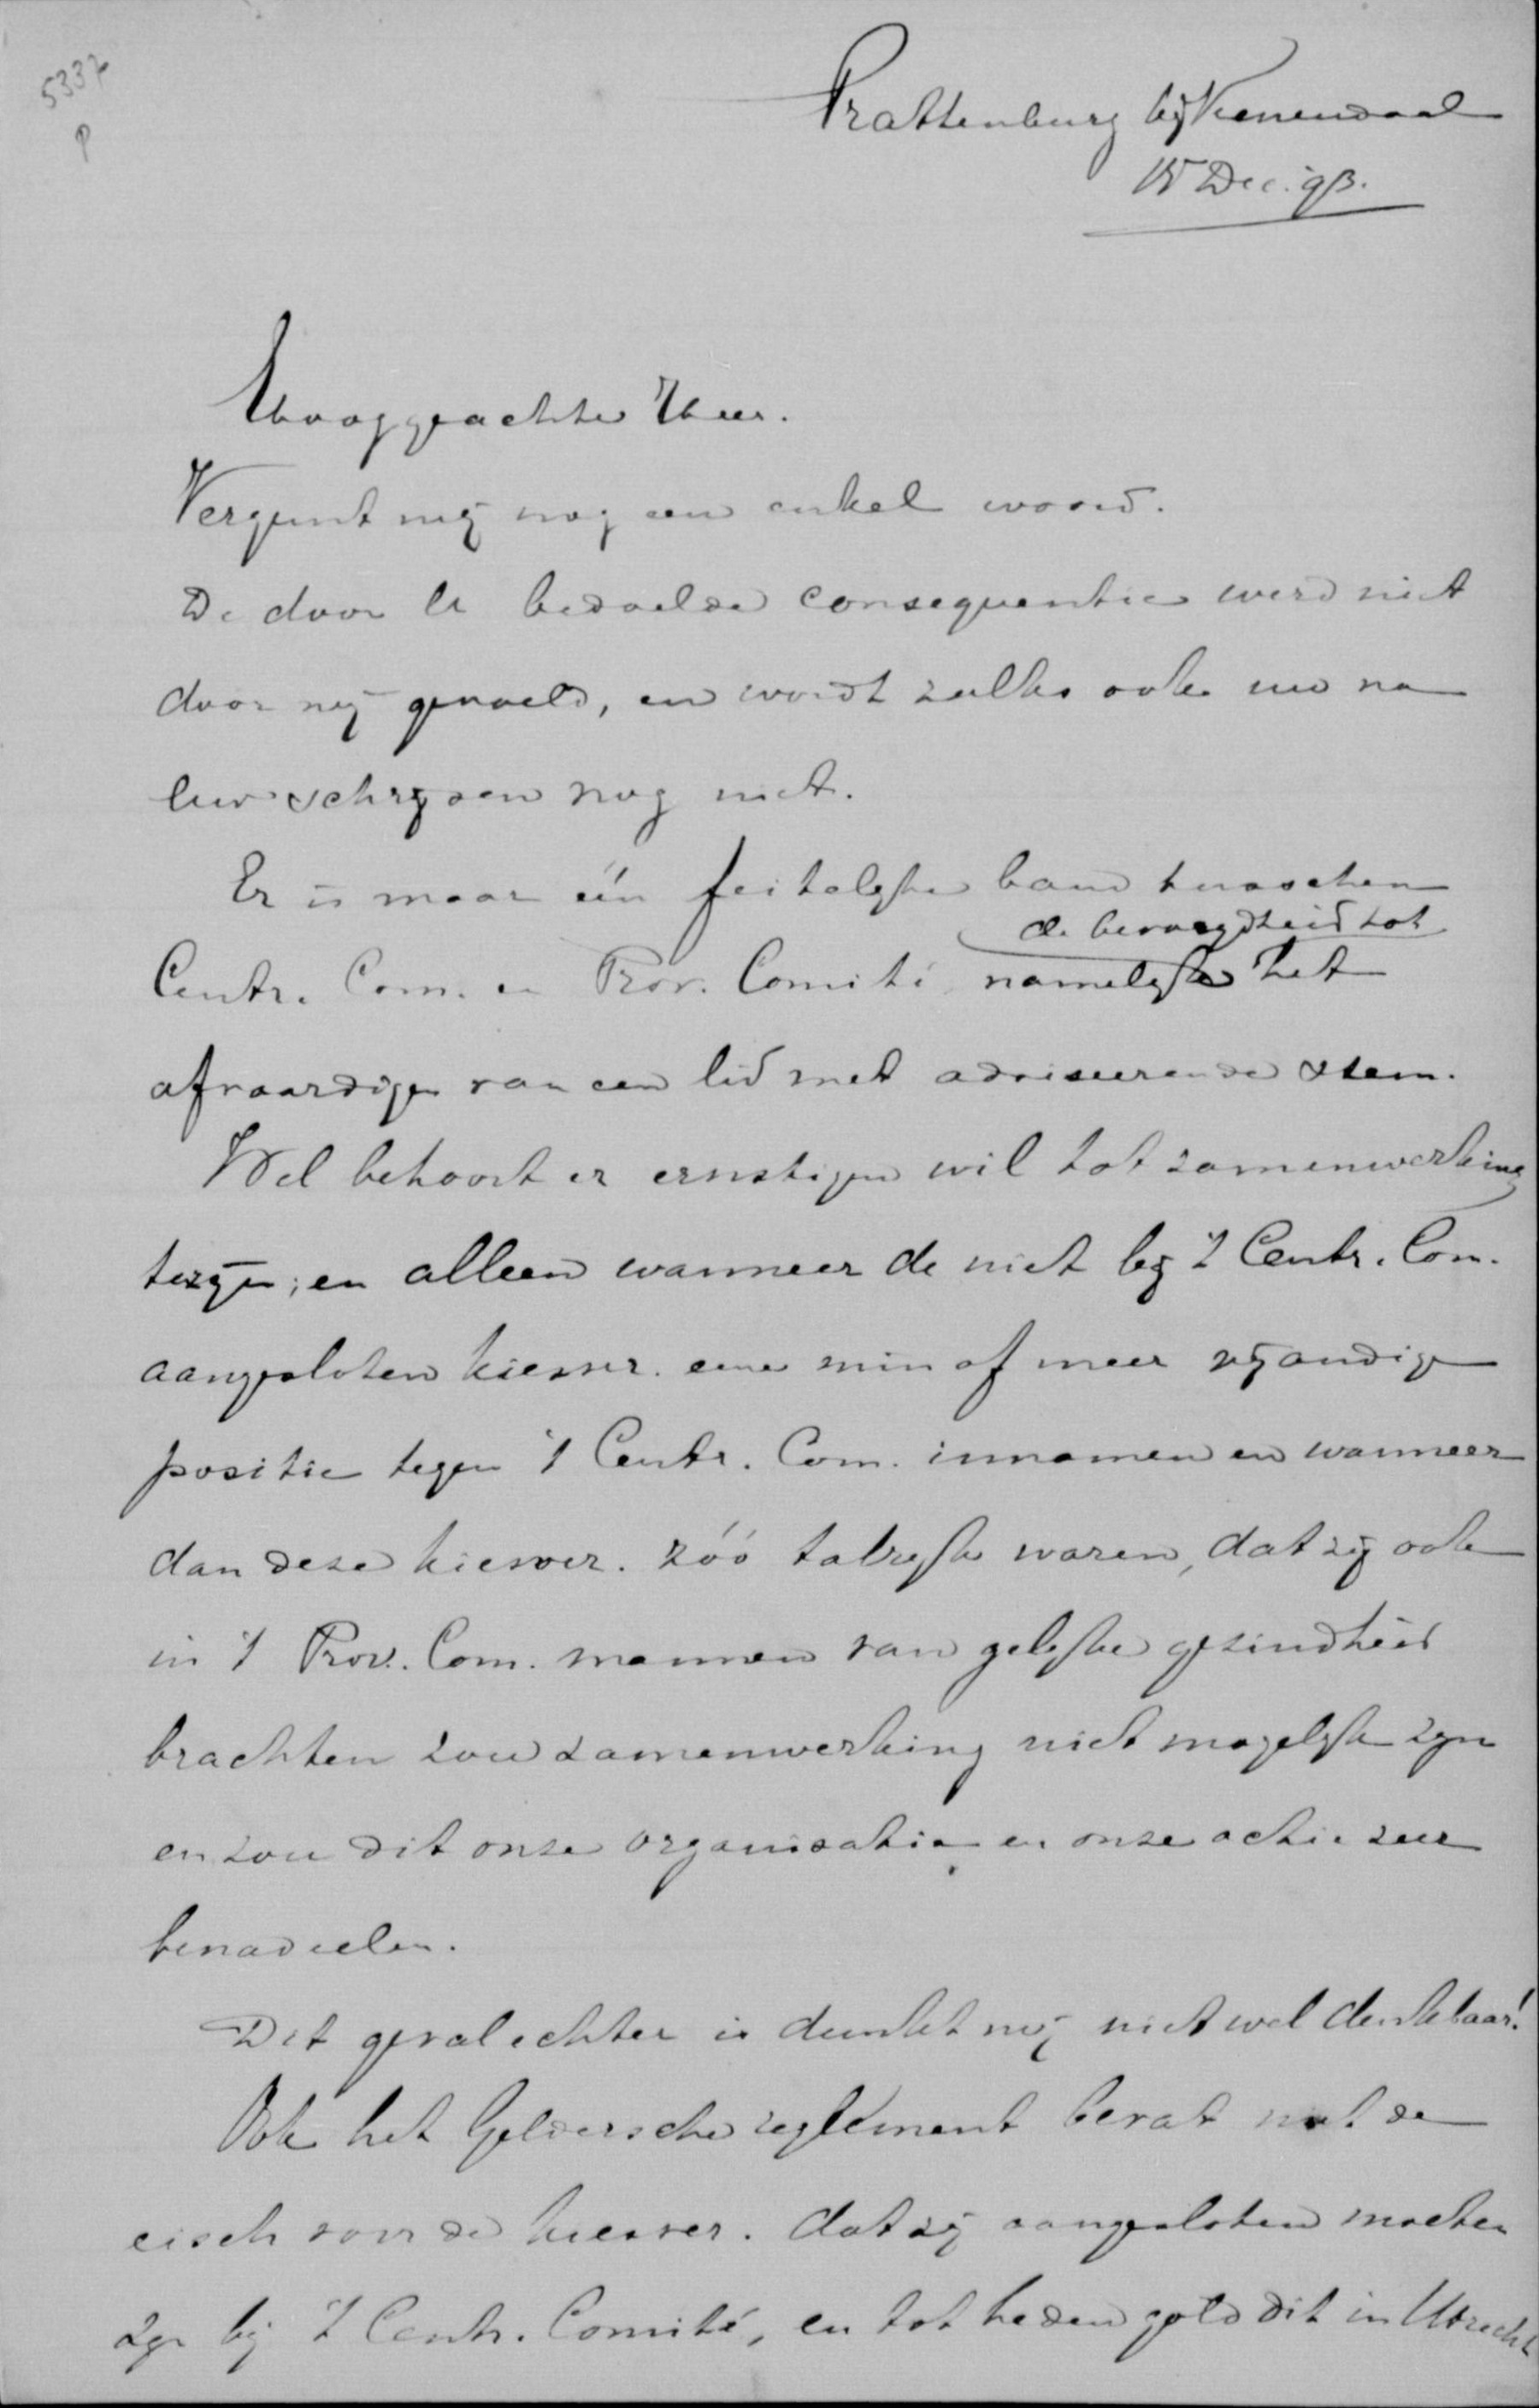 5337
P
Prattenburg bij Veenendaal
15 Dec. 93.
Hooggeachte Heer.
Vergunt mij nog een enkel woord.
De door U bedoelde consequentie werd niet
door mij gevoeld, en wordt zulks ook nu na
Uw schrijven nog niet.
Er is maar één feitelijke band tusschen
de bevoegdheid tot
Centr. Com. en Prov. Comité namelijk het
afvaardigen van een lid met adviseerende stem.
Wel behoort er ernstigen wil tot samenwerking
te zijn; en alleen wanneer de niet bij 't Centr. Com.
aangesloten kiesver. eene min of meer vijandige
positie tegen 't Centr. Com. innamen en wanneer
dan deze kiesver. zóó talrijk waren, dat zij ook
in 't Prov. Com. mannen van gelijke gezindheid
brachten zou samenwerking niet mogelijk zijn
en zou dit onze organisatie en onze actie zeer
benadeelen.
Dit geval echter is dunkt mij niet wel denkbaar!
Ook het Geldersche reglement bevat niet de
eisch voor de kiesver. dat zij aangesloten moeten
zijn bij 't Centr. Comité, en tot heden gold dit in Utrecht